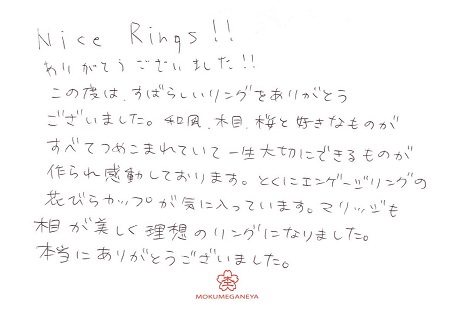 Nice Rings!!
ありがとうございました!!
この度は、すばらしいリングをありがとう
ございました。和風、木目、桜と好きなものが
すべてつめこまれていて一生大切にできるものが
作られ感動しております。とくにエンゲージリングの
花びらカップが気に入っています。マリッジも
木目が美しく理想のリングになりました。
本当にありがとうございました。
MOKUMEGANEYA